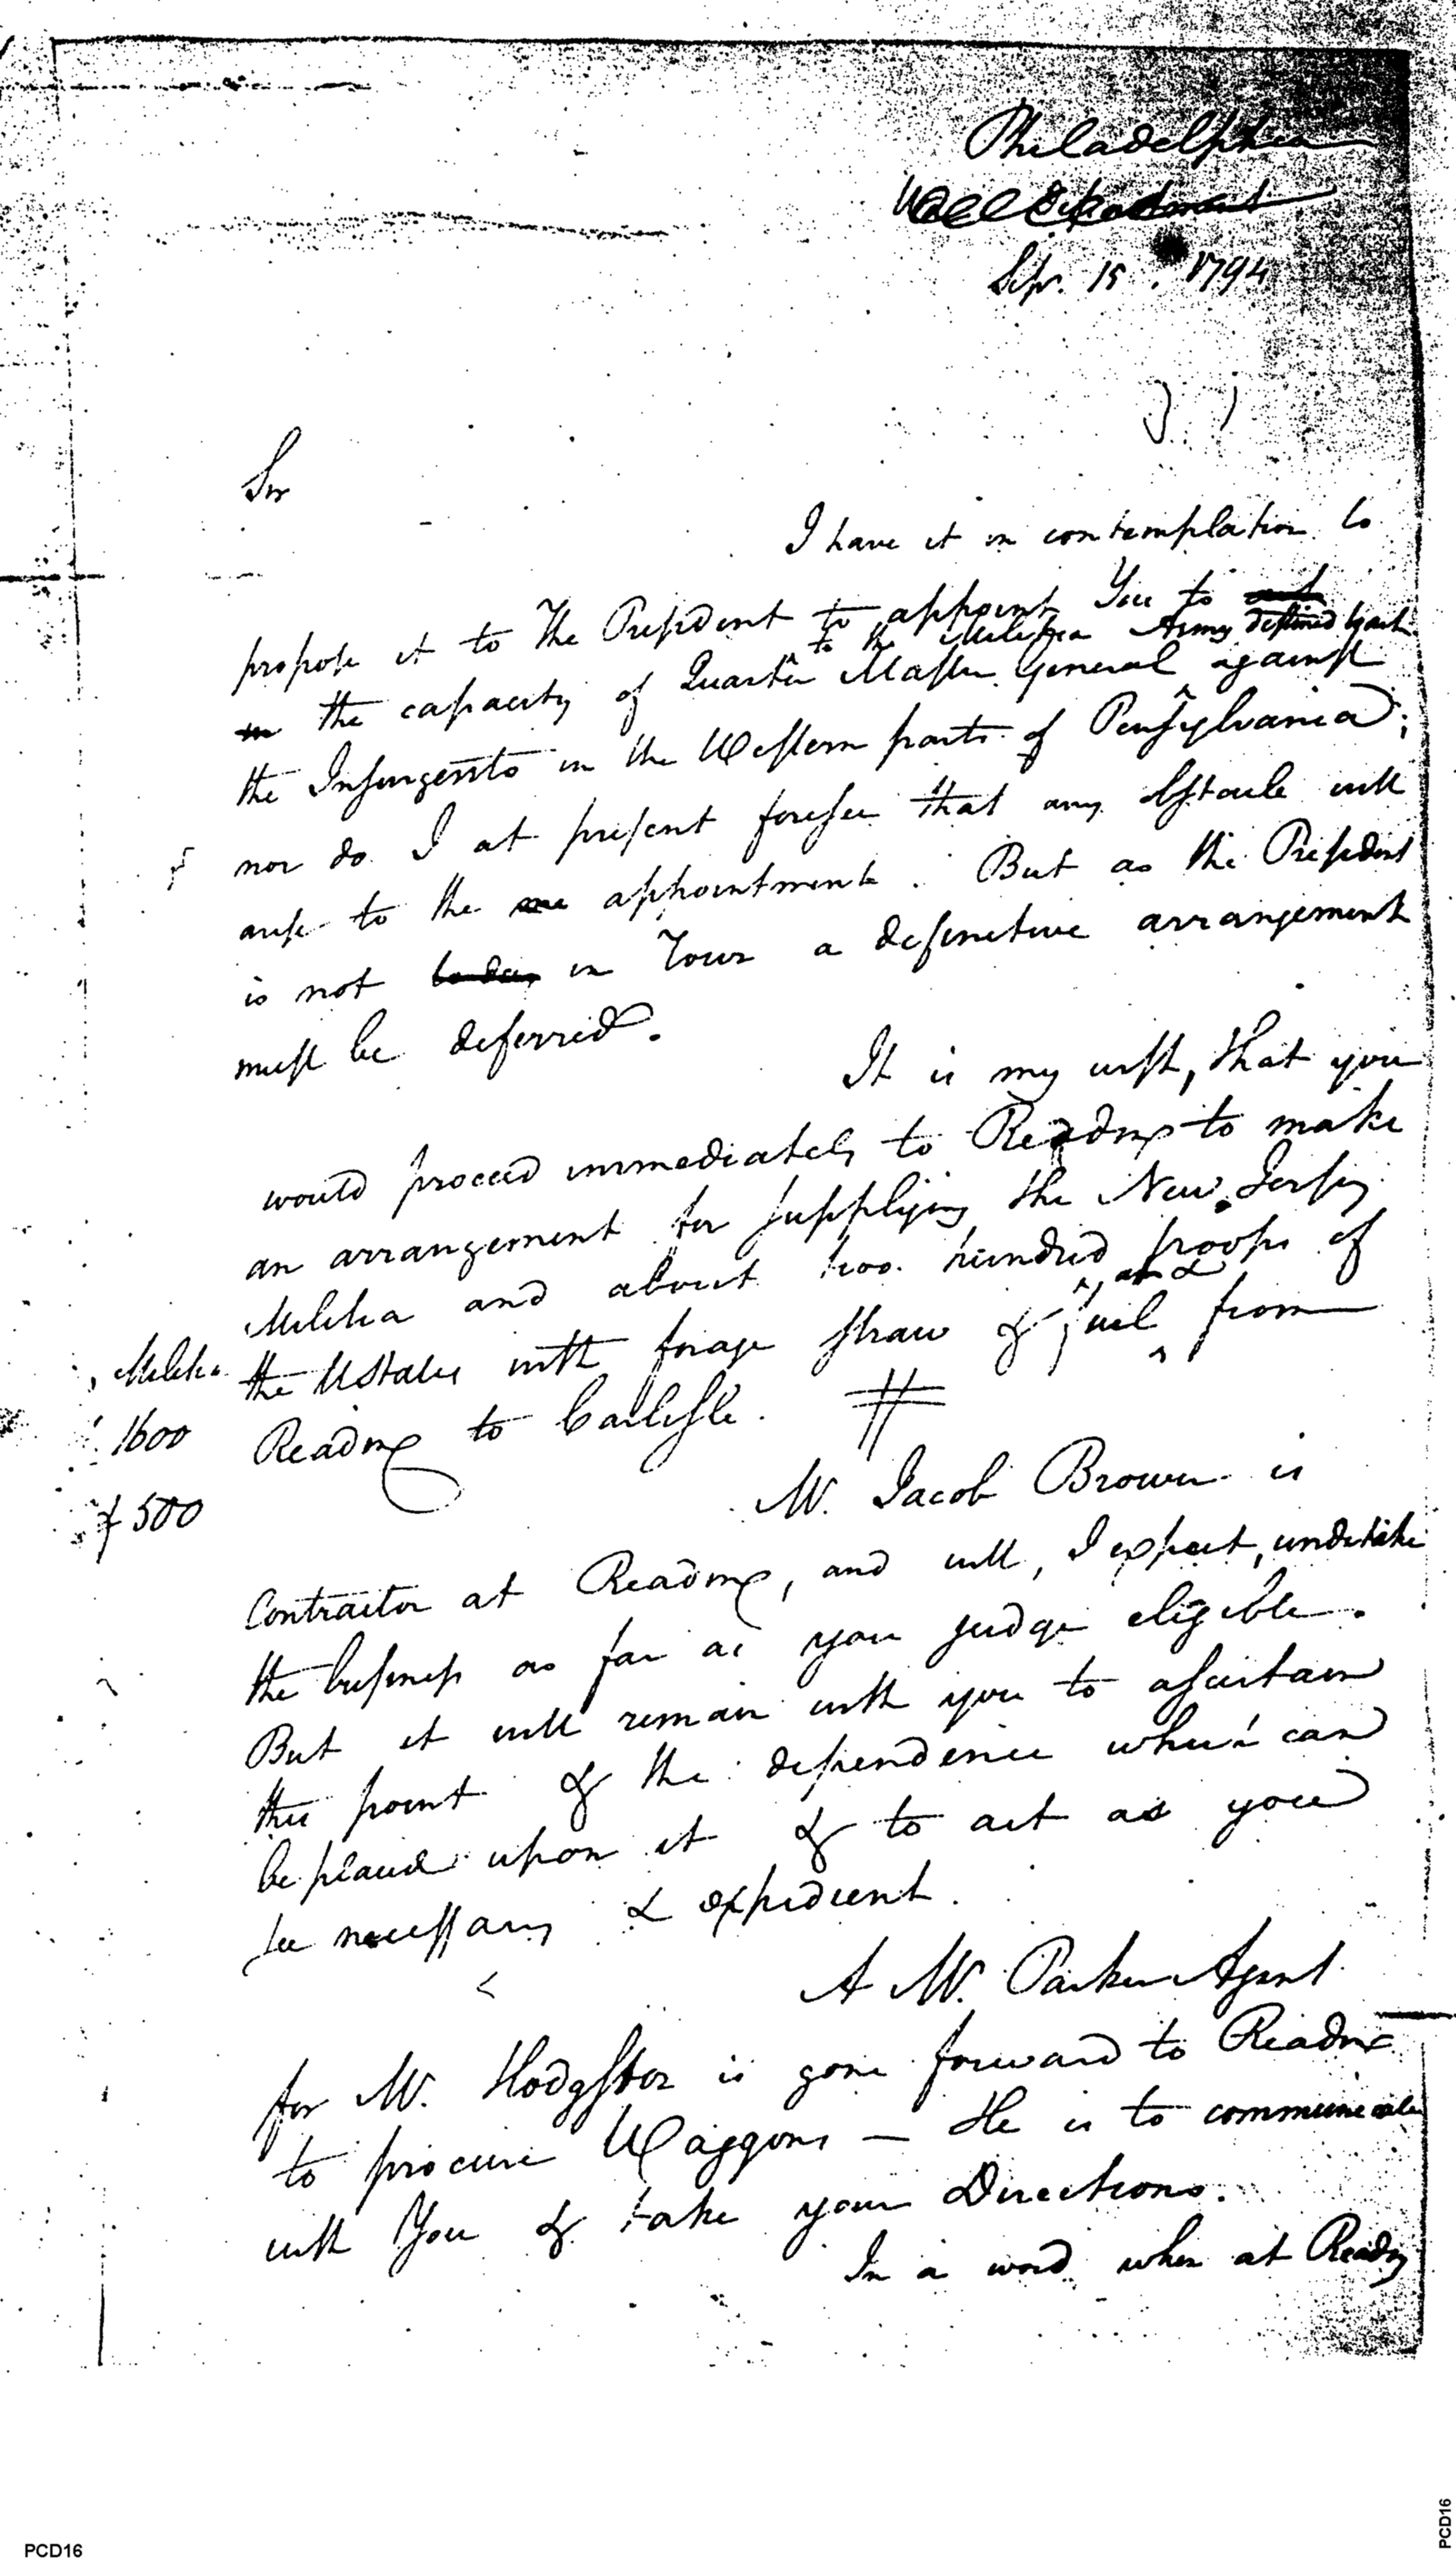 Philadelphia
War Department
Sepr. 15. 1794
Sir
I have it in contemplation to
propose it to the President to appoint You to
to the Militia Army destined to act
in the capacity of Quarter Master General against
the Insurgents in the Western parts of Pensylvania;
nor do I at present foresee that any obstacle will
arise to the appointment. But as the President
is not to day in Town a definitive arrangement
must be deferred.
It is my wish, that you
would proceed immediately to Reading to make
an arrangement for supplying the New Jersey
Militia and about two hundred troops of
and
the UStates with forage straw & fuel from
Reading to Carlisle. #
Militia
1600
f 500
Mr. Jacob Brown is
Contractor at Reading, and will, I expect, undertake
the business as far as you judge eligible.
But it will remain with you to ascertain
this point & the dependence which can
be placed upon it & to act as you
see necessary & expedient.
A Mr. Parker Agent
for Mr. Hodgsdon is gone forward to Reading
to procure Waggons — He is to communicate
with You & take your Directions.
In a word when at Reading
PCD16
PCD16